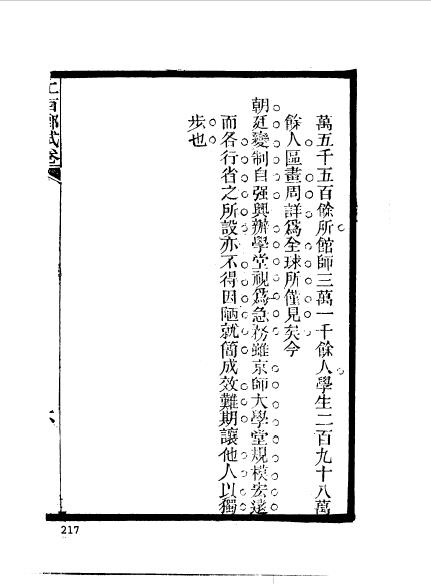 萬五千五百餘所館師三萬一千餘人學生二百九十八萬
餘人區畫周詳爲全球所僅見矣今
朝廷變制自强興辦學堂視爲急務雖京師大學堂規模宏遠
而各行省之所設亦不得因陋就簡成效難期讓他人以獨
步也
江西鄉試卷
217